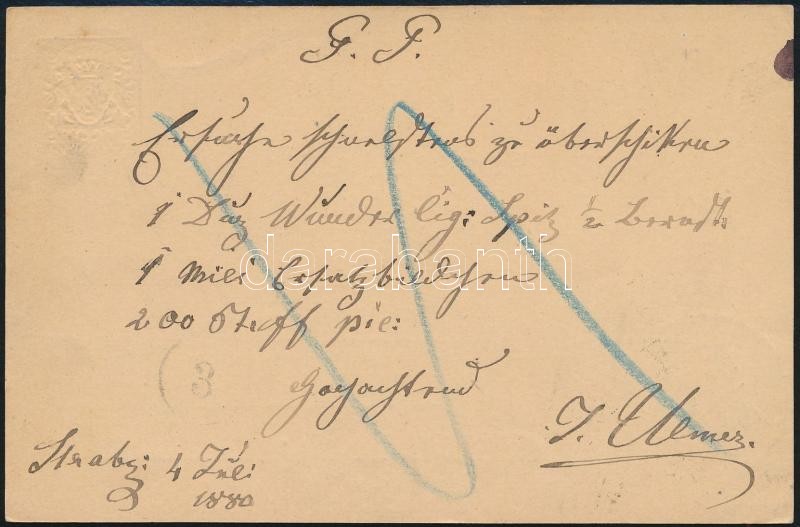 P. P.
Ersuche schnelstens zu überschiken
1 Duz Wunder lig: Spitz ½
1 Ersatzbildchen
200 Steff pil:
Hochachtend
J. Ulmer.
3
Strabg: 4 Jul:
1880
darabanth